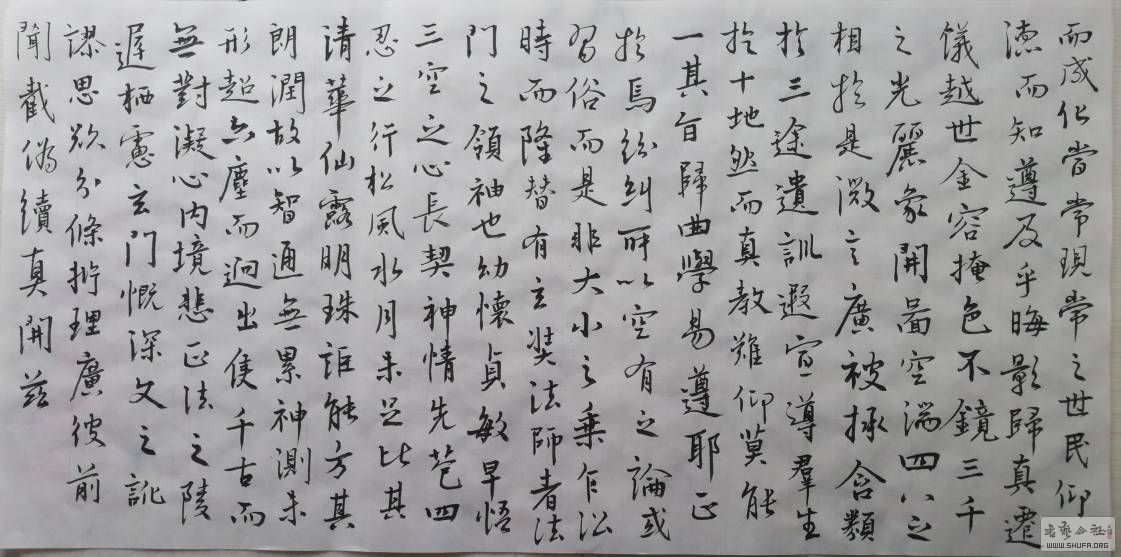 而成化當常現常之世民仰
德而知遵及乎晦影歸真遷
儀越世金容掩色不鏡三千
之光麗象開圖空端四八之
相於是微言廣被拯含類
於三途遺訓遐宣導羣生
於十地然而真教難仰莫能
一其旨歸曲學易遵耶正
於焉紛糾所以空有之論或
習俗而是非大小之乘乍訟
時而隆替有玄奘法師者法
門之領袖也幼懷貞敏早悟
三空之心長契神情先苞四
忍之行松風水月未足比其
清華仙露明珠詎能方其
朗潤故以智通無累神測未
形超六塵而迥出隻千古而
無對凝心內境悲正法之陵
遲栖慮玄門慨深文之訛
謬思欲分條析理廣彼前
聞截偽續真開茲
書藝公社
WWW.SHUFA.ORG